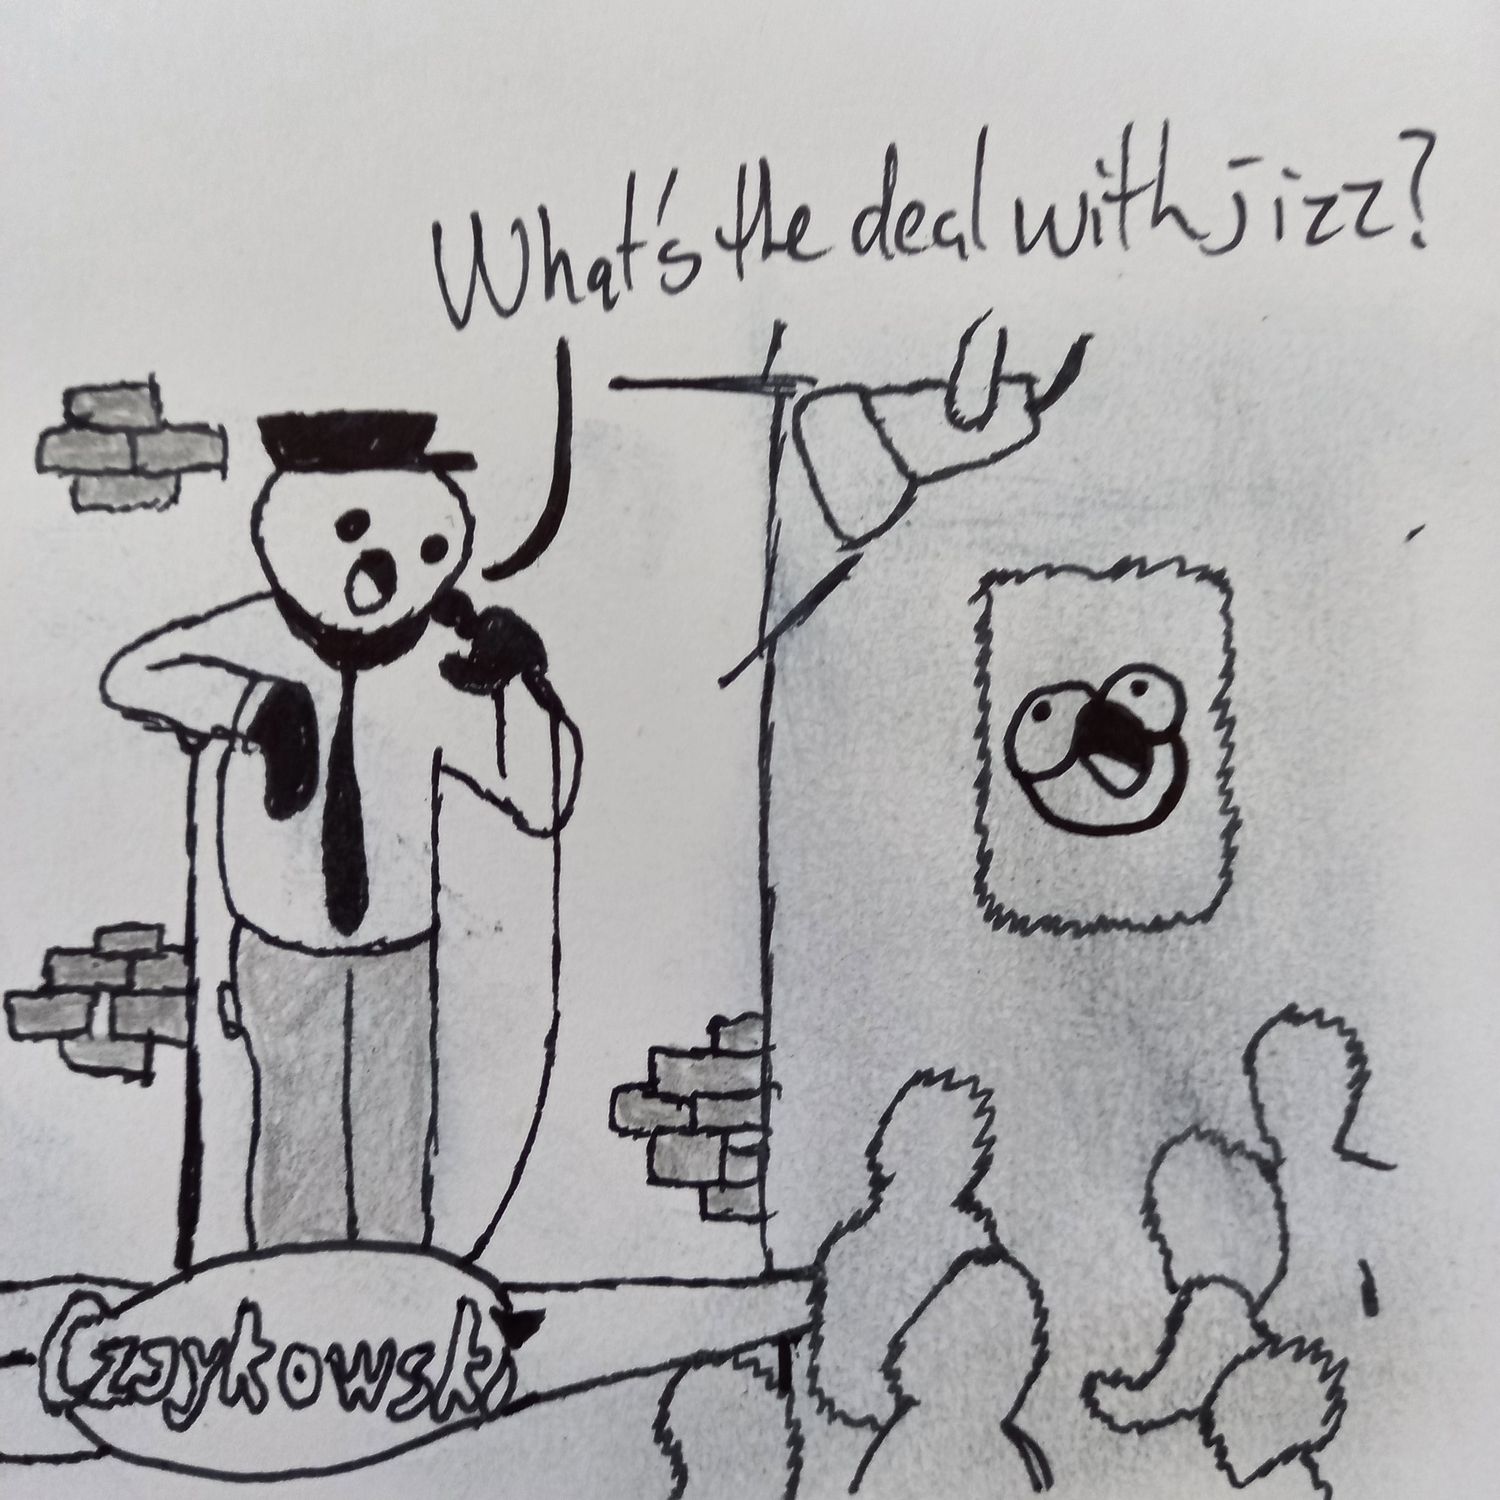 What's the deal with jizz?
Czajkowski